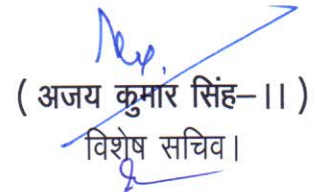 ( अजय कुमार सिंह–।। )
विशेष सचिव।